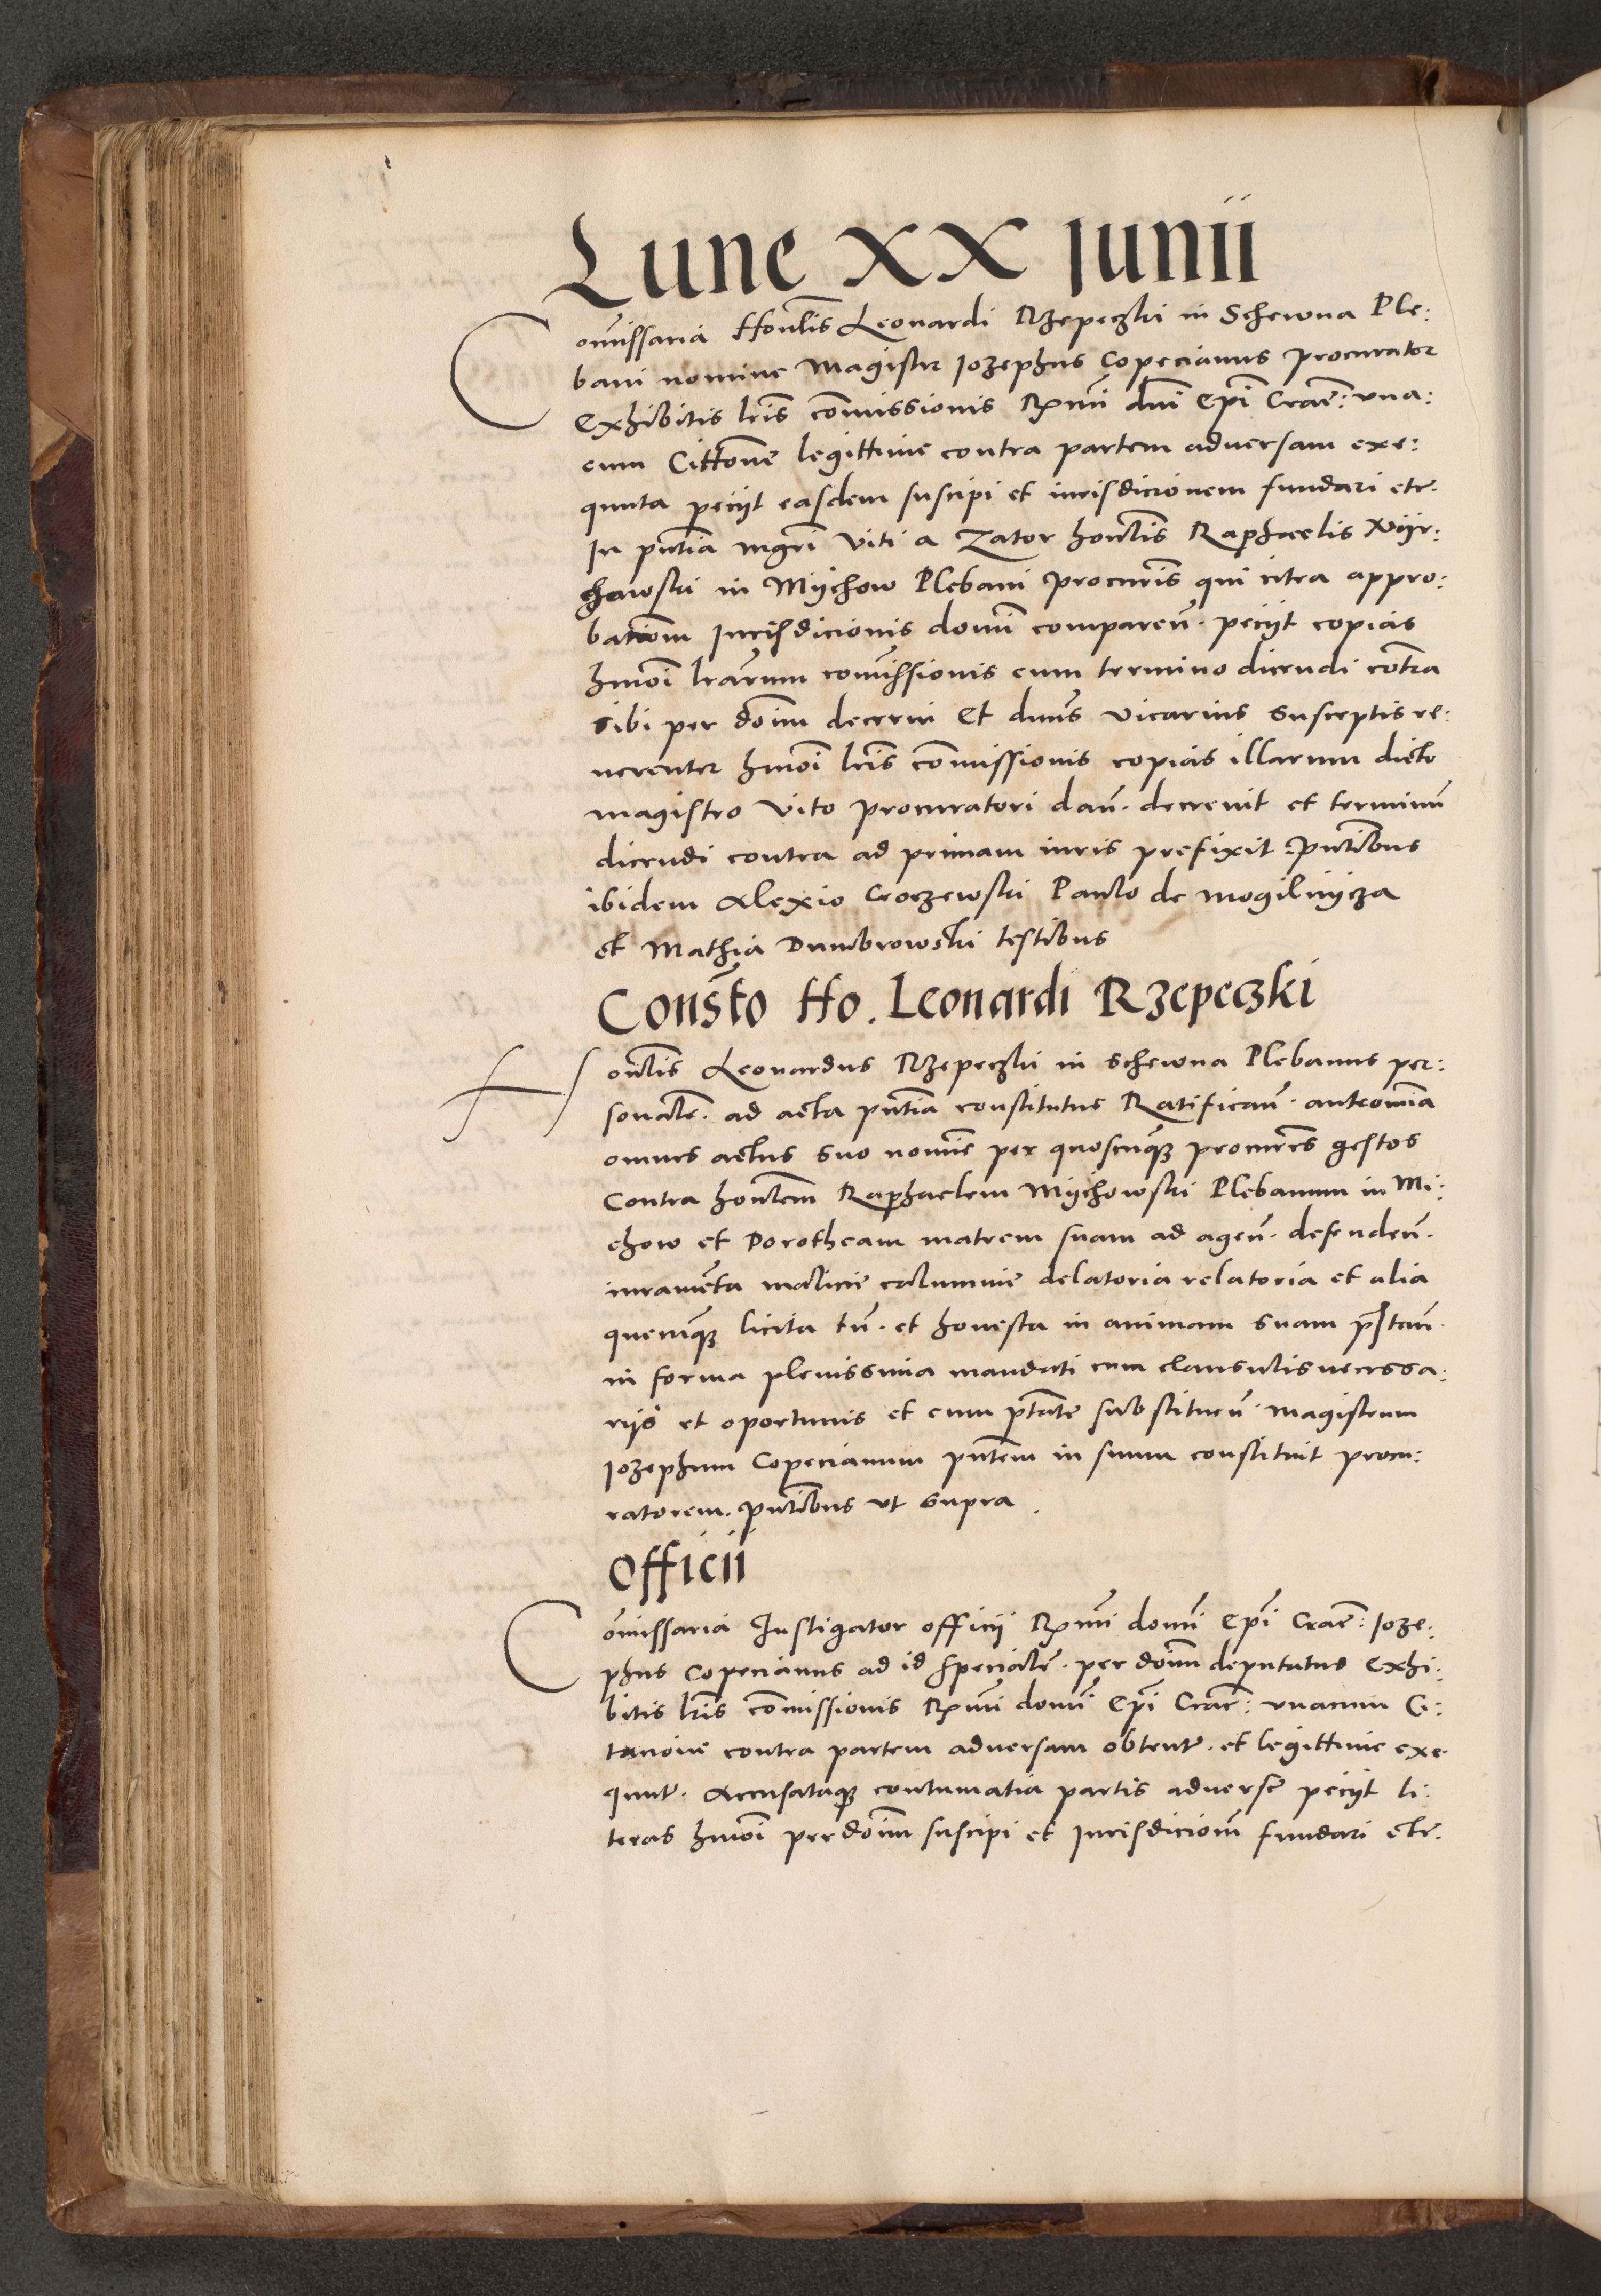 Lune XX Junii
Com̄issaria Hon̄lis Leonardi Rzepeczki in Schewna Ple:
bani nomine Magister Iozephus Copecianus procurator
Exhibitis lr̄is com̄issionis Rx̄mi dnī Ep̄i Crac̄: vna:
cum Citton̄e legittime contra partem adversam exe:
quuta peciit easdem suscipi et iurisdicionem fundari etc̄.
In pn̄tia mgr̄i Viti a Zator honl̄is Raphaelis
in Mijchow Plebani procur̄is qui citra appro:
bationem Jurisdicionis domī comparen̄. peciit copias
hmōi lrārum com̄issionis cum termino dicendi cont̄ra
sibi per doīnm decerni Et dnūs vicarius susceptis re:
uerenter hmōi lr̄is com̄issionis copias illarum dicto
magistro Vito procuratori dan̄. decreuit et terminū
dicendi contra ad primam iuris prefixit. pn̄tibus
ibidem Alexio Croczewski Paulo de Mogilnijcza
et Mathia Dumbrowski testibus
Cons̄to Ho. Leonardi Rzepeczki
Honl̄is Leonardus Rzepeczki in Schewna Plebanus per:
sonalr̄. ad acta pn̄tia constitutus Ratifican̄. anteom̄ia
omnes actus suo noīe per quoscūq procur̄es gestos
Contra honl̄em Raphaelem Mijchowski Plebanum in Mi:
chow et Dorotheam matrem suam ad agen̄. defenden̄.
iuramēta malicie calumnie delatoria relatoria et alia
quecūq licita tn̄. et honesta in animam suam p̄stan̄.
in forma plenissima mandati cum clausulis necessa:
rijs et oportunis et cum p̄tate substituen̄. Magistrum
Iozephum Copecianum pn̄tem in suum constituit procu:
ratorem. pn̄tibus ut supra.
Officii
Com̄issaria Instigator officij Rx̄mi domī Ep̄i Crac̄: Ioze:
phus Copecianus ad id specialr̄. per doīnm deputatus Exhi:
bitis lr̄is com̄issionis Rx̄mi domī Ep̄i Crac̄: vnacum Ci:
tacione contra partem adversam obtent̄. et legittime exe:
quut̄. Accusataq contumatia partis aduerse peciit li:
teras hmōi per doīnm suscipi et Jurisdicionem fundari etc̄.